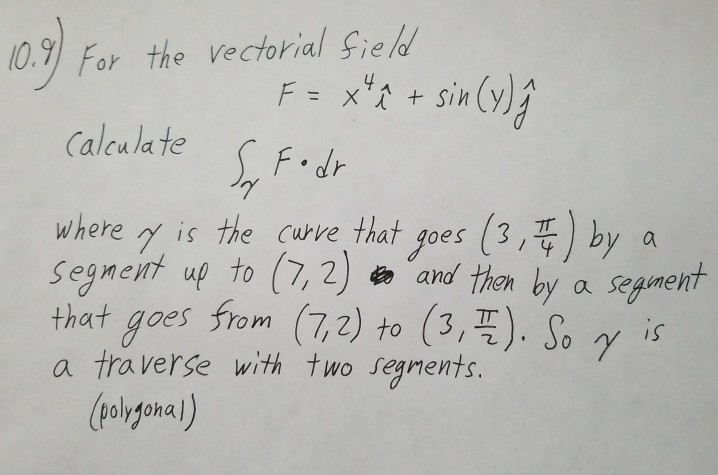 10.9) For the vectorial field
F = x⁴î + sin(y)ĵ
Calculate ∫γ F • dr
where γ is the curve that goes (3, π/4) by a
segment up to (7, 2) and then by a segment
that goes from (7,2) to (3, π/2). So γ is
a traverse with two segments.
(polygonal)